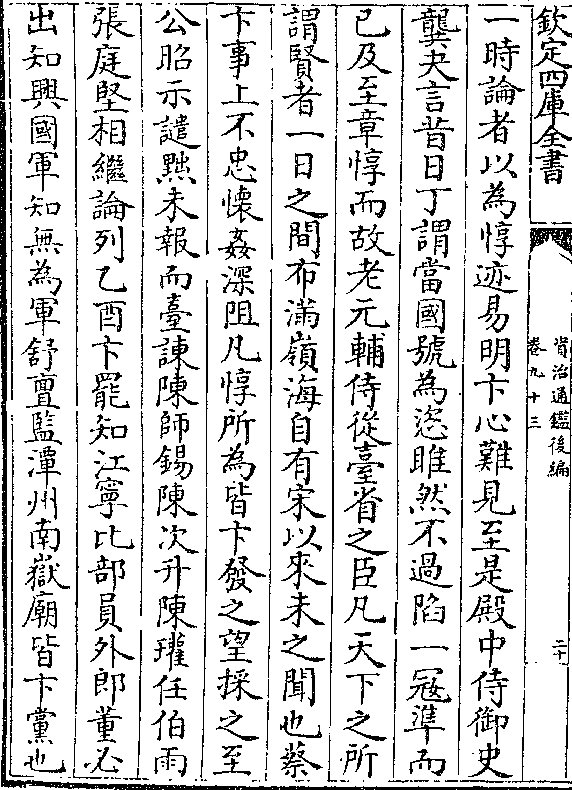 欽定四庫全書
資治通鑑後編
卷九十三
二十
一時論者以為惇迹易明卞心難見至是殿中侍御史
龔夬言昔日丁謂當國號為恣雎然不過陷一宼準而
已及至章惇而故老元輔侍從臺省之臣凡天下之所
謂賢者一日之間布滿嶺海自有宋以來未之聞也蔡
卞事上不忠懷姦深阻凡惇所為皆卞發之望採之至
公昭示譴黜未報而臺諫陳師錫陳次升陳瓘任伯雨
張庭堅相繼論列乙酉卞罷知江寧比部員外郎董必
出知興國軍知無為軍舒亶監潭州南嶽廟皆卞黨也